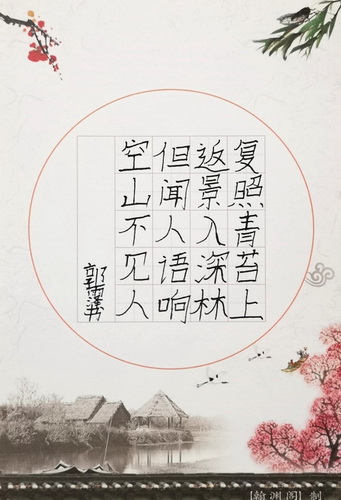 空山不见人
但闻人语响
返景入深林
复照青苔上
【翰渊阁】制